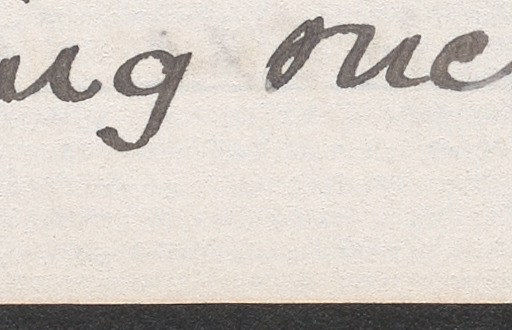 ng one